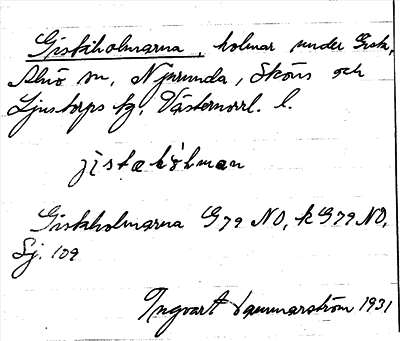 Giskiholmarna, holmar under Gisk,
Alnö sn, Njurunda, Sköns och
Ljustorps tg, Västernorrl. l.
jistəkòlman
Giskholmarna G79 NO, k G79 NO,
Sj. 109
Ingvart Hammarström 1931